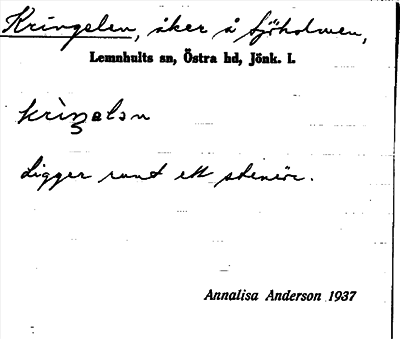 Kringelen, åker å Sjöholmen,
Lemnhults sn, Östra hd, Jönk. l.
Ligger runt ett stenrör.
Annalisa Anderson 1937